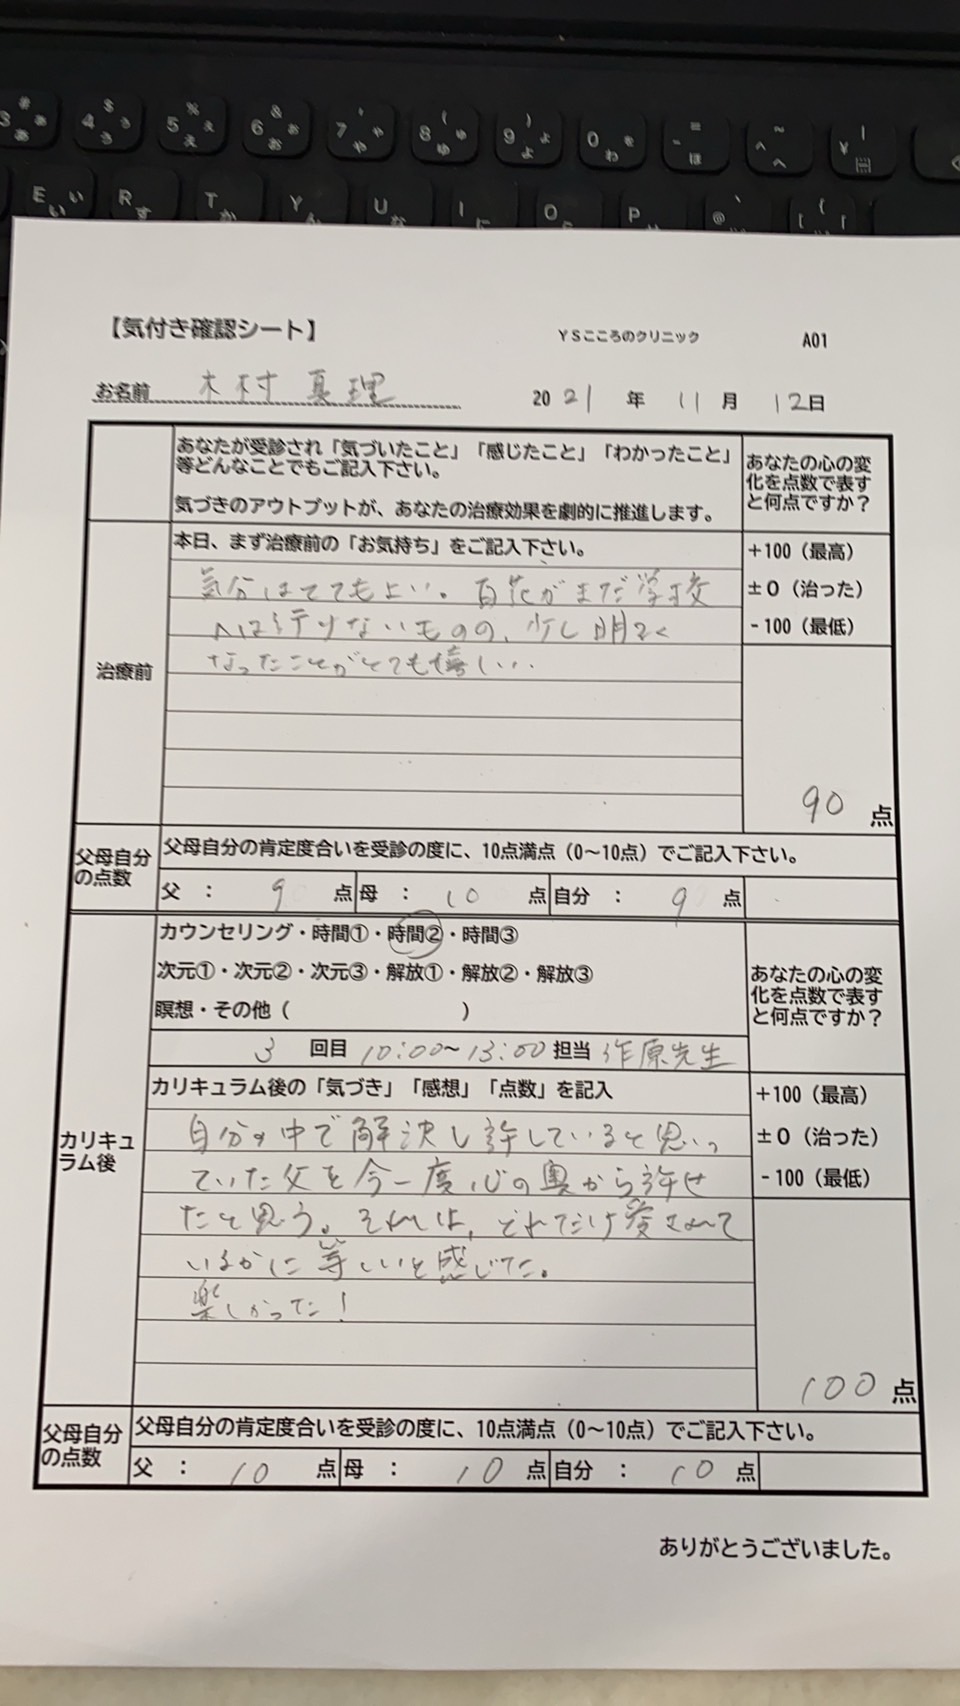 # 3 ぁ あ
$ 4 ぅ う
% 5 ぇ え
& 6 ぉ お
' 7 ゃ や
( 8 ゅ ゆ
) 9 ょ よ
0 を わ
= - ほ
~ ^ へ
| ¥
E い ぃ
R す
T か
Y ん
U な
I に
O ら
P せ
@
{ [ 「
【気付き確認シート】 YSこころのクリニック A01
お名前 木村 真理 2021年 11月 12日
あなたが受診され「気づいたこと」「感じたこと」「わかったこと」
等どんなことでもご記入下さい。
気づきのアウトプットが、あなたの治療効果を劇的に推進します。
あなたの心の変
化を点数で表す
と何点ですか？
治療前
本日、まず治療前の「お気持ち」をご記入下さい。
気分はとてもよい。百花がまだ学校
へは行けないものの、少し明るく
なったことがとても嬉しい..
+100（最高）
±0（治った）
-100（最低）
90 点
父母自分
の点数
父母自分の肯定度合いを受診の度に、10点満点（0～10点）でご記入下さい。
父 ： 9 点 母 ： 10 点 自分 ： 9 点
カリキュ
ラム後
カウンセリング・時間①・時間②・時間③
次元①・次元②・次元③・解放①・解放②・解放③
瞑想・その他（ ）
あなたの心の変
化を点数で表す
と何点ですか？
3 回目 10:00~13:00 担当 作原先生
カリキュラム後の「気づき」「感想」「点数」を記入
自分の中で解決し許していると思っ
ていた父を今一度心の奥から許せ
たと思う。それは、どれだけ愛されて
いるかに等しいと感じた。
楽しかった！
+100（最高）
±0（治った）
-100（最低）
100 点
父母自分
の点数
父母自分の肯定度合いを受診の度に、10点満点（0～10点）でご記入下さい。
父 ： 10 点 母 ： 10 点 自分 ： 10 点
ありがとうございました。